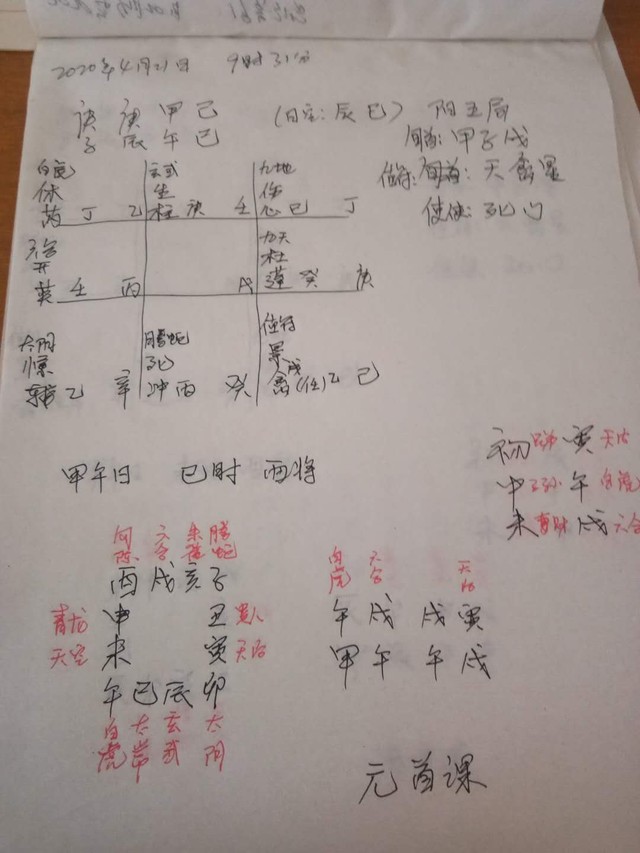 2020年4月21日 9时31分
庚 庚 甲 己
子 辰 午 巳
(日空:辰巳) 阳五局
旬首:甲子戊
值符:天禽星
值使:死门
白虎 玄武 九地
休 生 伤
芮 丁 乙 柱 庚 壬 心 己 丁
六合 九天
开 杜
英 壬 丙 戊 蓬 癸 庚
太阴 腾蛇 值符
惊 死 景
辅 乙 辛 冲 丙 癸 禽(任) 己
甲午日 巳时 酉将
初 兄弟 寅 天后
中 子孙 午 白虎
末 妻财 戌 六合
勾陈 六合 朱雀 腾蛇
酉 戌 亥 子
青龙 申 丑 贵人
天空 未 寅 天后
午 巳 辰 卯
白虎 太常 玄武 太阴
白虎 六合 天后
午 戌 戌 寅
甲 午 午 戌
元首课